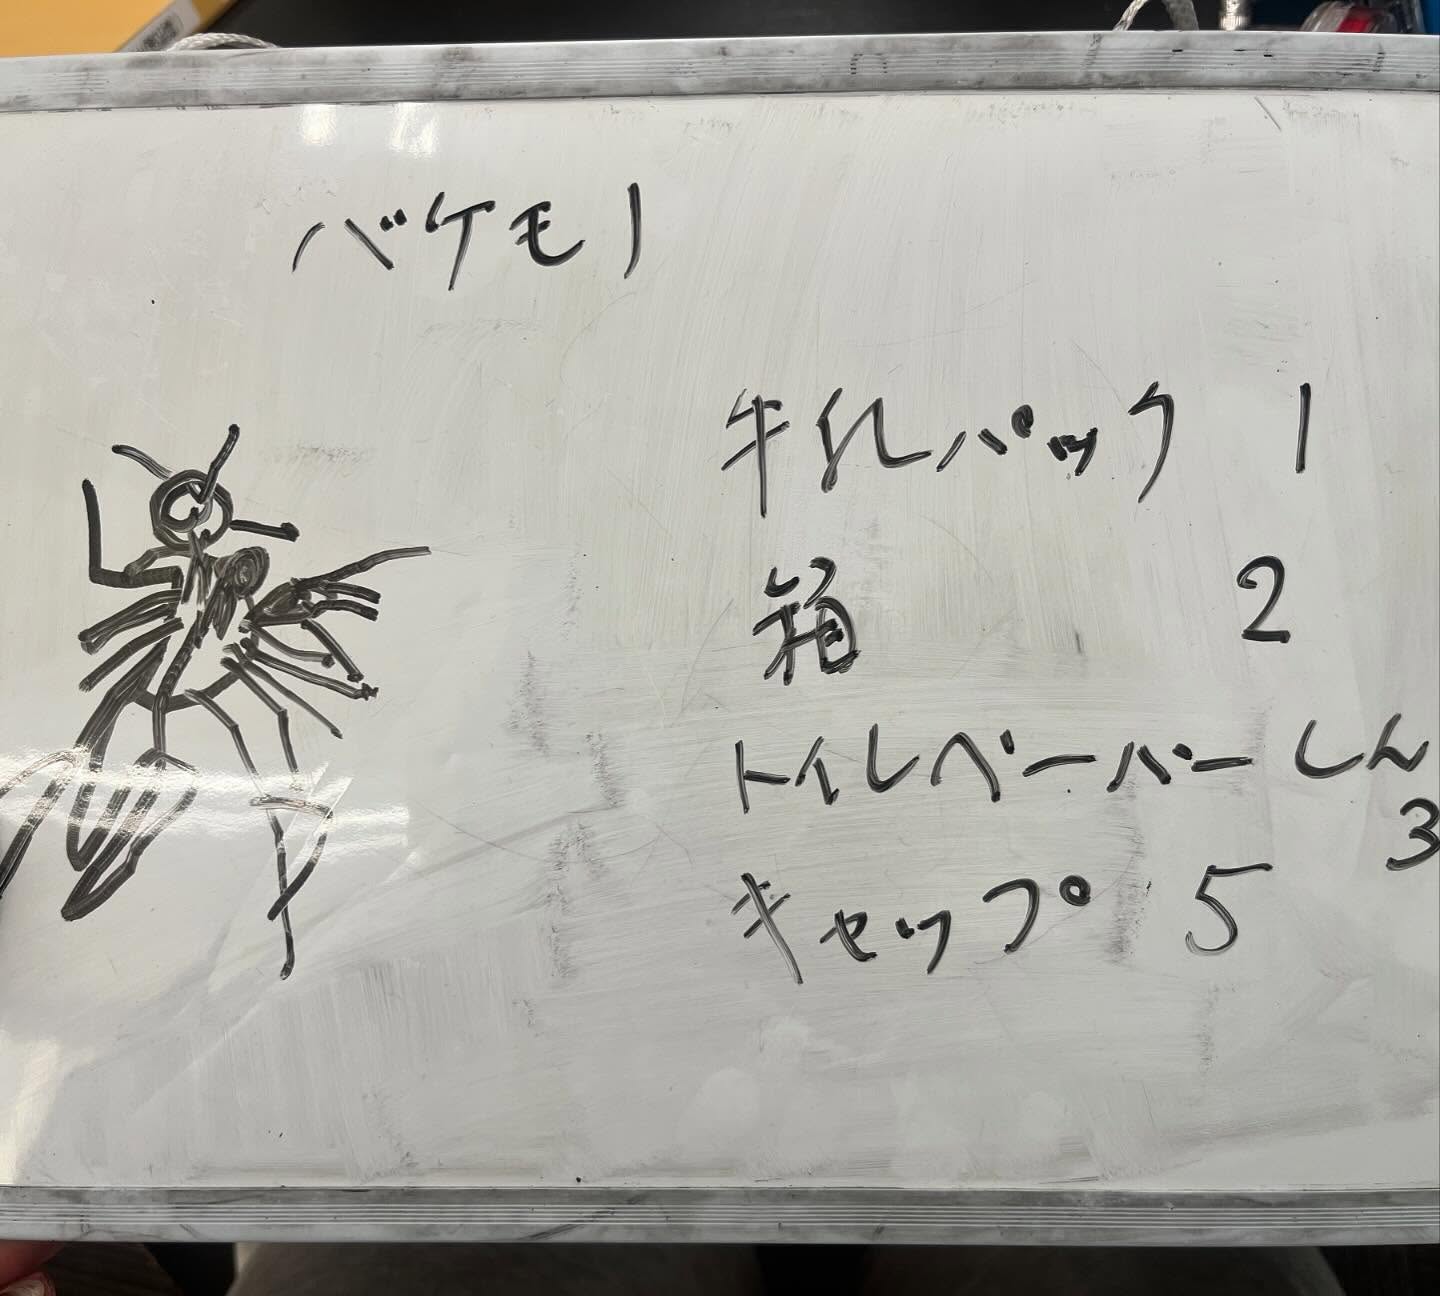 バケモノ
牛乳パック 1
箱 2
トイレペーパーしん
3
キャップ 5